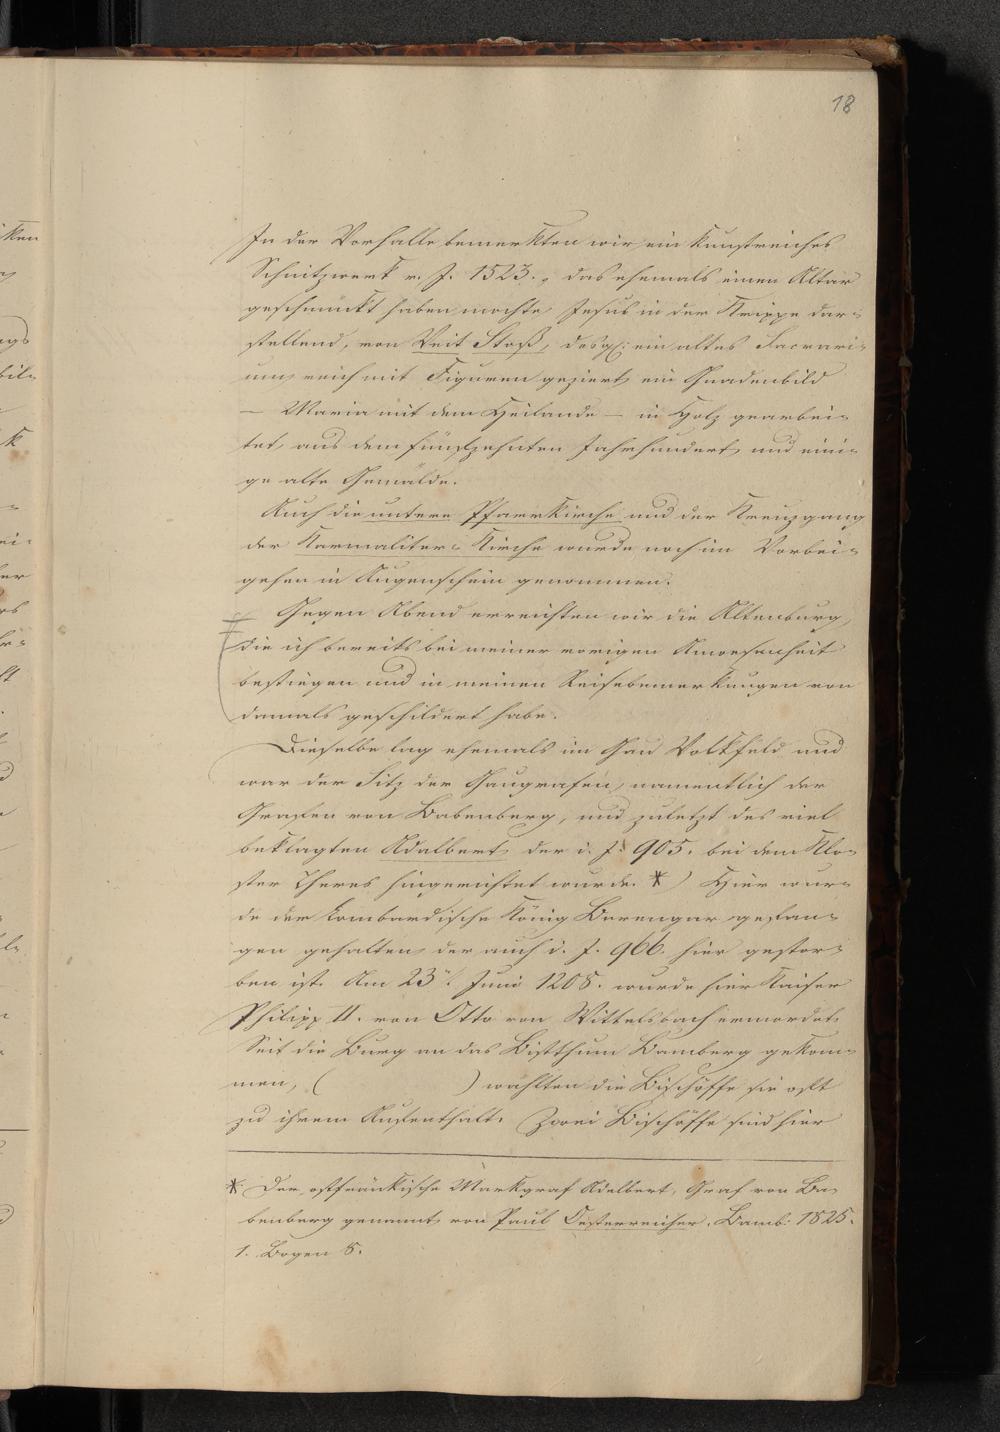 18
In der Vorhalle bemerkten wir ein kunstreiches
Schnitzwerk v. J. 1523., das ehemals einen Altar
geschmückt haben mochte, Jesus in der Krippe dar-
stellend, von Veit Stoß, desgl: ein altes Sacrari-
um, reich mit Figuren geziert, ein Gnadenbild
— Maria mit dem Heilande — in Holz gearbei-
tet, aus dem fünfzehnten Jahrhundert, und eini-
ge alte Gemälde.
Auch die untere Pfarrkirche und der Kreuzgang
der Karmaliter-Kirche wurde noch im Vorbei-
gehen in Augenschein genommen.
Gegen Abend erreichten wir die Altenburg,
die ich bereits bei meiner vorigen Anwesenheit
bestiegen und in meinen Reisebemerkungen von
damals geschildert habe.
Dieselbe lag ehemals im Gau Volkfeld und
war der Sitz der Gaugrafen, namentlich der
Grafen von Babenberg, und zuletzt des viel
beklagten Adalbert, der i. J. 905. bei dem Klo-
ster Theres hingerichtet wurde. *) Hier wur-
de der lombardische König Berengar gefan-
gen gehalten, der auch i. J. 966. hier gestor-
ben ist. Am 23. Juni 1208. wurde hier Kaiser
Philipp II. von Otto von Wittelsbach ermordet.
Seit die Burg an das Bistthum Bamberg gekom-
men, ( ) wählten die Bischöffe sie oft
zu ihrem Aufenthalt. Zwei Bischöffe sind hier
* Der ostfränkische Markgraf Adelbert, Graf von Ba-
benberg genannt, von Paul Oesterreicher. Bamb: 1825.
1. Bogen 8.